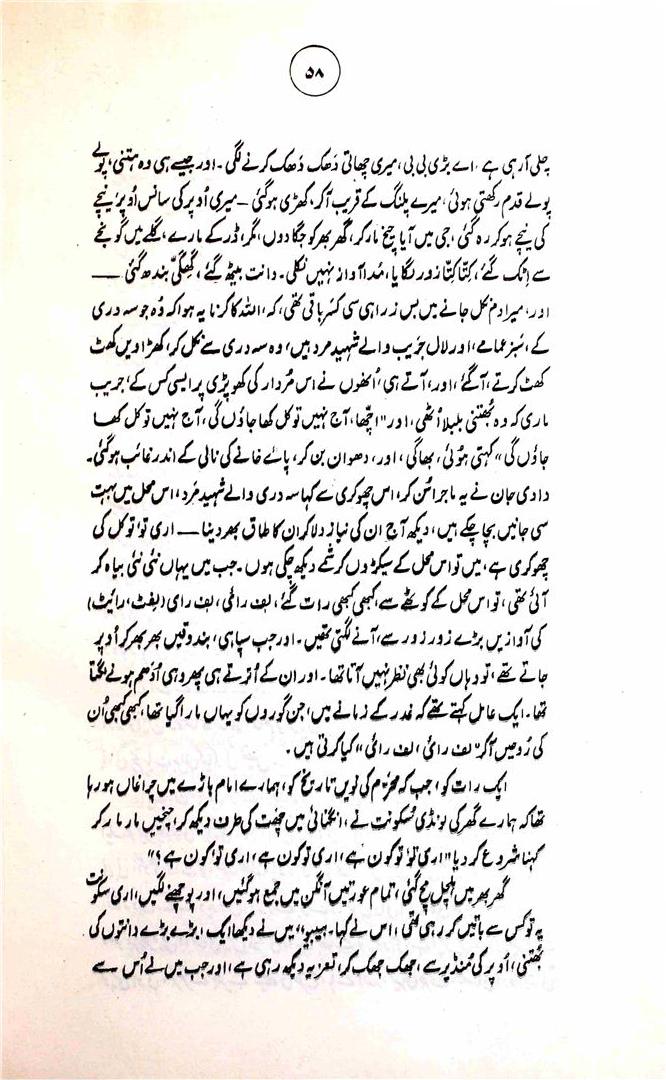 ۵۸
چلی آرہی ہے، اے بڑی بی بی، میری چھاتی دَھک دَھک کرنے لگی۔ اور جیسے ہی وہ بھتنی، پولے
پولے قدم رکھتی ہوئی، میرے پلنگ کے قریب آکر، کھڑی ہوگئی — میری اُوپر کی سانس اُوپر، نیچے
کی نیچے ہوکر رہ گئی، جی میں آیا چیخ مارکر، گھر بھر کو جگا دوں، مگر، ڈر کے مارے، گلے میں گونجے
سے اٹک گئے، کتّا کتّا زور لگایا، مُدا آواز نہیں نکلی۔ دانت بیٹھ گئے، گھگّی بندھ گئی —
اور، میرا دم نکل جانے میں بس ذرا ہی سی کسر باقی تھی، کہ، اللہ کا کرنا یہ ہوا کہ وُہ جو سہ دری
کے، سبز عمامے، اور لال جریب والے شہید مرد ہیں، وہ سہ دری سے نکل کر، کھڑاویں کھٹ
کھٹ کرتے، آگئے، اور، آتے ہی، اُنھوں نے اس مُردار کی کھوپڑی پر ایسی کس کے، جریب
ماری کہ وہ بُھتنی بلبلا اُٹھی، اور "اچّھا، آج نہیں تو کل کھا جاؤں گی، آج نہیں تو کل کھا
جاؤں گی" کہتی ہُوئی، بھاگی، اور، دھواں بن کر، پاے خانے کی نالی کے اندر غائب ہوگئی۔
دادی جان نے یہ ماجرا سُن کر، اس چھوکری سے کہا سہ دری والے شہید مَرد، اس محل میں بہت
سی جانیں بچا چکے ہیں، دیکھ آج ان کی نیاز دلا کر ان کا طاق بھر دینا — اری تو، تو کل کی
چھوکری ہے، میں تو اس محل کے سیکڑوں کرشمے دیکھ چکی ہوں۔ جب میں یہاں نئی نئی بیاہ کر
آئی تھی، تو اس محل کے کوٹھے سے، کبھی کبھی رات گئے، لف رائی، لف رای (لیفٹ، رائیٹ)
کی آوازیں بڑے زور زور سے، آنے لگتی تھیں۔ اور جب سپاہی، بندوقیں بھر بھر کر اُوپر
جاتے تھے، تو وہاں کوئی بھی نظر نہیں آتا تھا۔ اور ان کے اُترتے ہی پھر وہی اُدھم ہونے لگتا
تھا۔ ایک عامل کہتے تھے کہ غدر کے زمانے میں، جن گوروں کو یہاں مارا گیا تھا، کبھی کبھی اُن
کی رُوحیں آکر "لف رائ، لف رائ" کیا کرتی ہیں۔
ایک رات کو، جب کہ محرّم کی نویں تاریخ کو، ہمارے امام باڑے میں چراغاں ہو رہا
تھا کہ ہمارے گھر کی لونڈی سُکونت نے، انگنائی میں چھت کی طرف دیکھ کر، چیخیں مار مار کر
کہنا شروع کر دیا "اری تو، تو کون ہے، اری تو کون ہے، اری تو، کون ہے؟"
گھر بھر میں ہلچل مچ گئی، تمام عورتیں آنگن میں جمع ہوگئیں، اور پوچھنے لگیں، اری سکونت
یہ تو کس سے باتیں کر رہی تھی، اس نے کہا۔ بیبیو، میں نے دیکھا ایک، بڑے بڑے دانتوں کی
بُھتنی، اُوپر کی مُنڈیر سے، جھک جھک کر، تعزیہ دیکھ رہی ہے، اور جب میں نے اُس سے